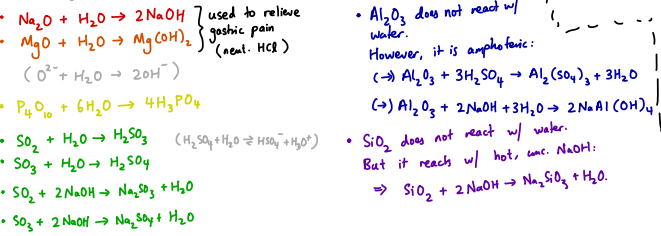 • Na₂O + H₂O → 2NaOH
• MgO + H₂O → Mg(OH)₂
used to relieve
gastric pain
(neut. HCl)
(O²⁻ + H₂O → 2OH⁻)
• P₄O₁₀ + 6H₂O → 4H₃PO₄
• SO₂ + H₂O → H₂SO₃
(H₂SO₄ + H₂O ⇌ HSO₄⁻ + H₃O⁺)
• SO₃ + H₂O → H₂SO₄
• SO₂ + 2NaOH → Na₂SO₃ + H₂O
• SO₃ + 2NaOH → Na₂SO₄ + H₂O
• Al₂O₃ does not react w/
water.
However, it is amphoteric:
(→) Al₂O₃ + 3H₂SO₄ → Al₂(SO₄)₃ + 3H₂O
(→) Al₂O₃ + 2NaOH + 3H₂O → 2NaAl(OH)₄
• SiO₂ does not react w/ water.
But it reacts w/ hot, conc. NaOH:
⇒ SiO₂ + 2NaOH → Na₂SiO₃ + H₂O.